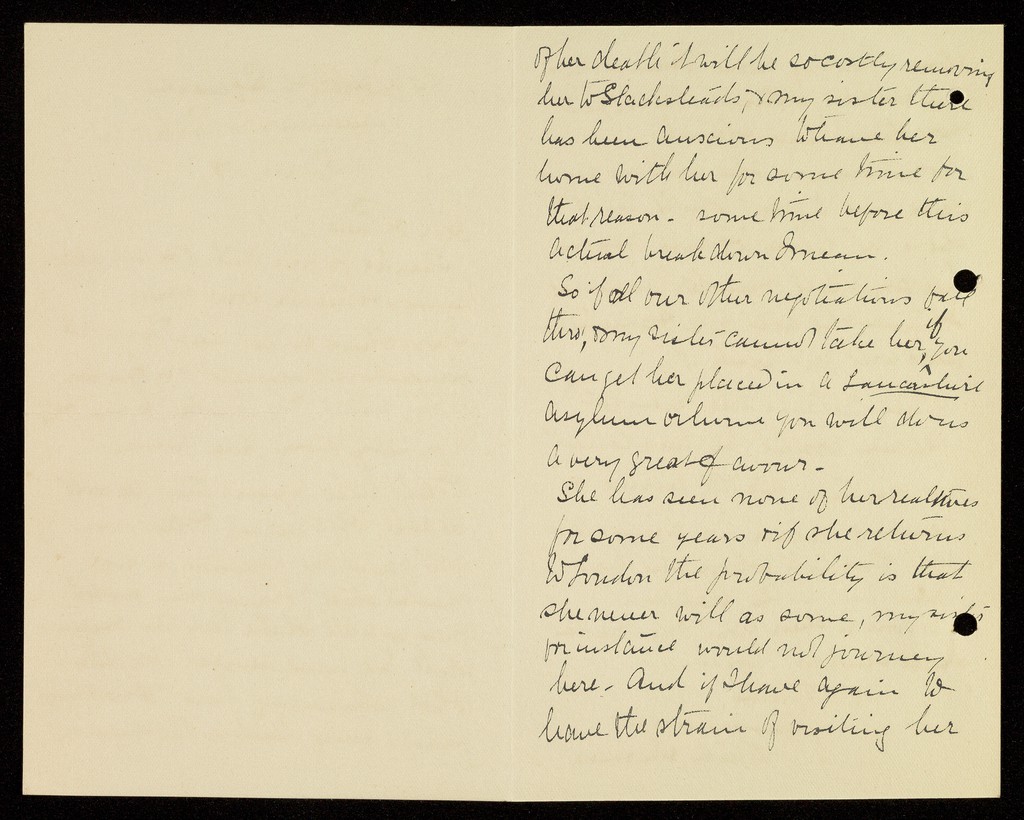 of her death it will be so costly removing
her to Stacksteads, & my sister there
has been anscious to have her
home with her for some time for
that reason - some time before this
actual breakdown I mean.
So if all our other negotiations fall
thro', & my sister cannot take her, if you
can get her placed in a Lancashire
asylum or home you will do us
a very great favour -
She has seen none of her realtives
for some years & if she returns
to London the probability is that
she never will as some, my sister
for instance would not journey
here - And if I have again to
have the strain of visiting her